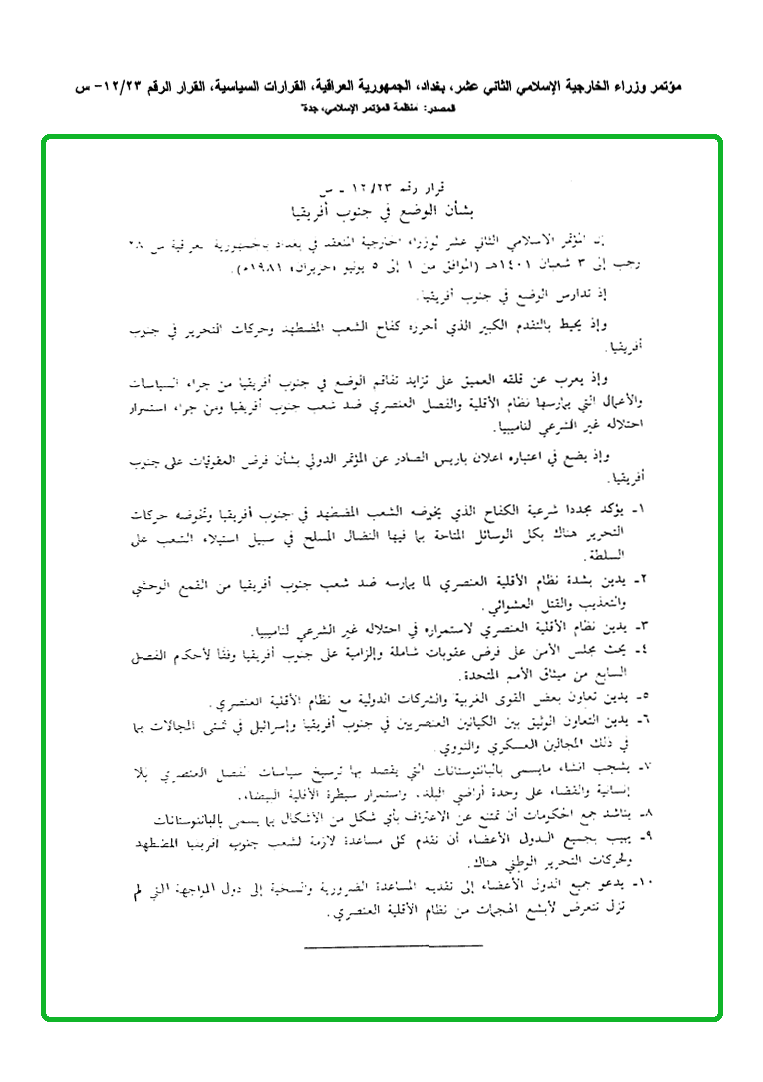 مؤتمر وزراء الخارجية الإسلامي الثاني عشر، بغداد، الجمهورية العراقية، القرارات السياسية، القرار الرقم ١٢/٢٣- س
المصدر: منظمة المؤتمر الإسلامي، جدة
قرار رقم ١٢/٢٣ - س
بشأن الوضع في جنوب أفريقيا
إن المؤتمر الاسلامي الثاني عشر لوزراء الخارجية المنعقد في بغداد بالجمهورية العراقية من ٢٨
رجب إلى ٣ شعبان ١٤٠١هـ (الموافق من ١ إلى ٥ يونيو «حزيران» ١٩٨١م).
إذ تدارس الوضع في جنوب أفريقيا.
وإذ يحيط بالتقدم الكبير الذي أحرزه كفاح الشعب المضطهد وحركات التحرير في جنوب
أفريقيا.
وإذ يعرب عن قلقه العميق على تزايد تفاقم الوضع في جنوب أفريقيا من جراء السياسات
والأعمال التي يمارسها نظام الأقلية والفصل العنصري ضد شعب جنوب أفريقيا ومن جراء استمرار
احتلاله غير الشرعي لناميبيا.
وإذ يضع في اعتباره اعلان باريس الصادر عن المؤتمر الدولي بشأن فرض العقوبات على جنوب
أفريقيا.
١- يؤكد مجددا شرعية الكفاح الذي يخوضه الشعب المضطهد في جنوب أفريقيا وتخوضه حركات
التحرير هناك بكل الوسائل المتاحة بما فيها النضال المسلح في سبيل استيلاء الشعب على
السلطة.
٢- يدين بشدة نظام الأقلية العنصري لما يمارسه ضد شعب جنوب أفريقيا من القمع الوحشي
والتعذيب والقتل العشوائي.
٣- يدين نظام الأقلية العنصري لاستمراره في احتلاله غير الشرعي لناميبيا.
٤- يحث مجلس الأمن على فرض عقوبات شاملة وإلزامية على جنوب أفريقيا وفقا لأحكام الفصل
السابع من ميثاق الأمم المتحدة.
٥- يدين تعاون بعض القوى الغربية والشركات الدولية مع نظام الأقلية العنصري.
٦- يدين التعاون الوثيق بين الكيانين العنصريين في جنوب أفريقيا وإسرائيل في شتى المجالات بما
في ذلك المجالين العسكري والنووي.
٧- يشجب انشاء مايسمى بالبانتوستانات التي يقصد بها ترسيخ سياسات الفصل العنصري بلا
إنسانية والقضاء على وحدة أراضي البلد، واستمرار سيطرة الأقلية البيضاء.
٨- يناشد جمع الحكومات أن تمتنع عن الاعتراف بأي شكل من الأشكال بما يسمى بالبانتوستانات
٩- يهيب بجميع الدول الأعضاء أن تقدم كل مساعدة لازمة لشعب جنوب افريقيا المضطهد
ولحركات التحرير الوطني هناك.
١٠- يدعو جميع الدول الأعضاء إلى تقديم المساعدة الضرورية والسخية إلى دول المواجهة التي لم
تزل تتعرض لأبشع الهجمات من نظام الأقلية العنصري.